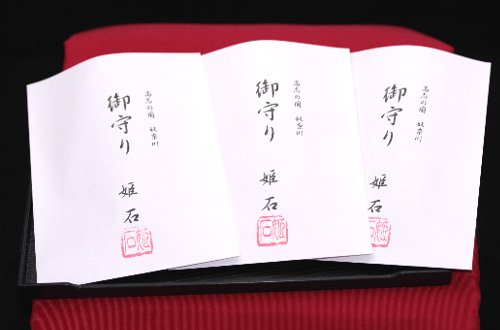 高志の国 奴奈川
御守り 姫石
姫石
高志の国 奴奈川
御守り 姫石
姫石
高志の国 奴奈川
御守り 姫石